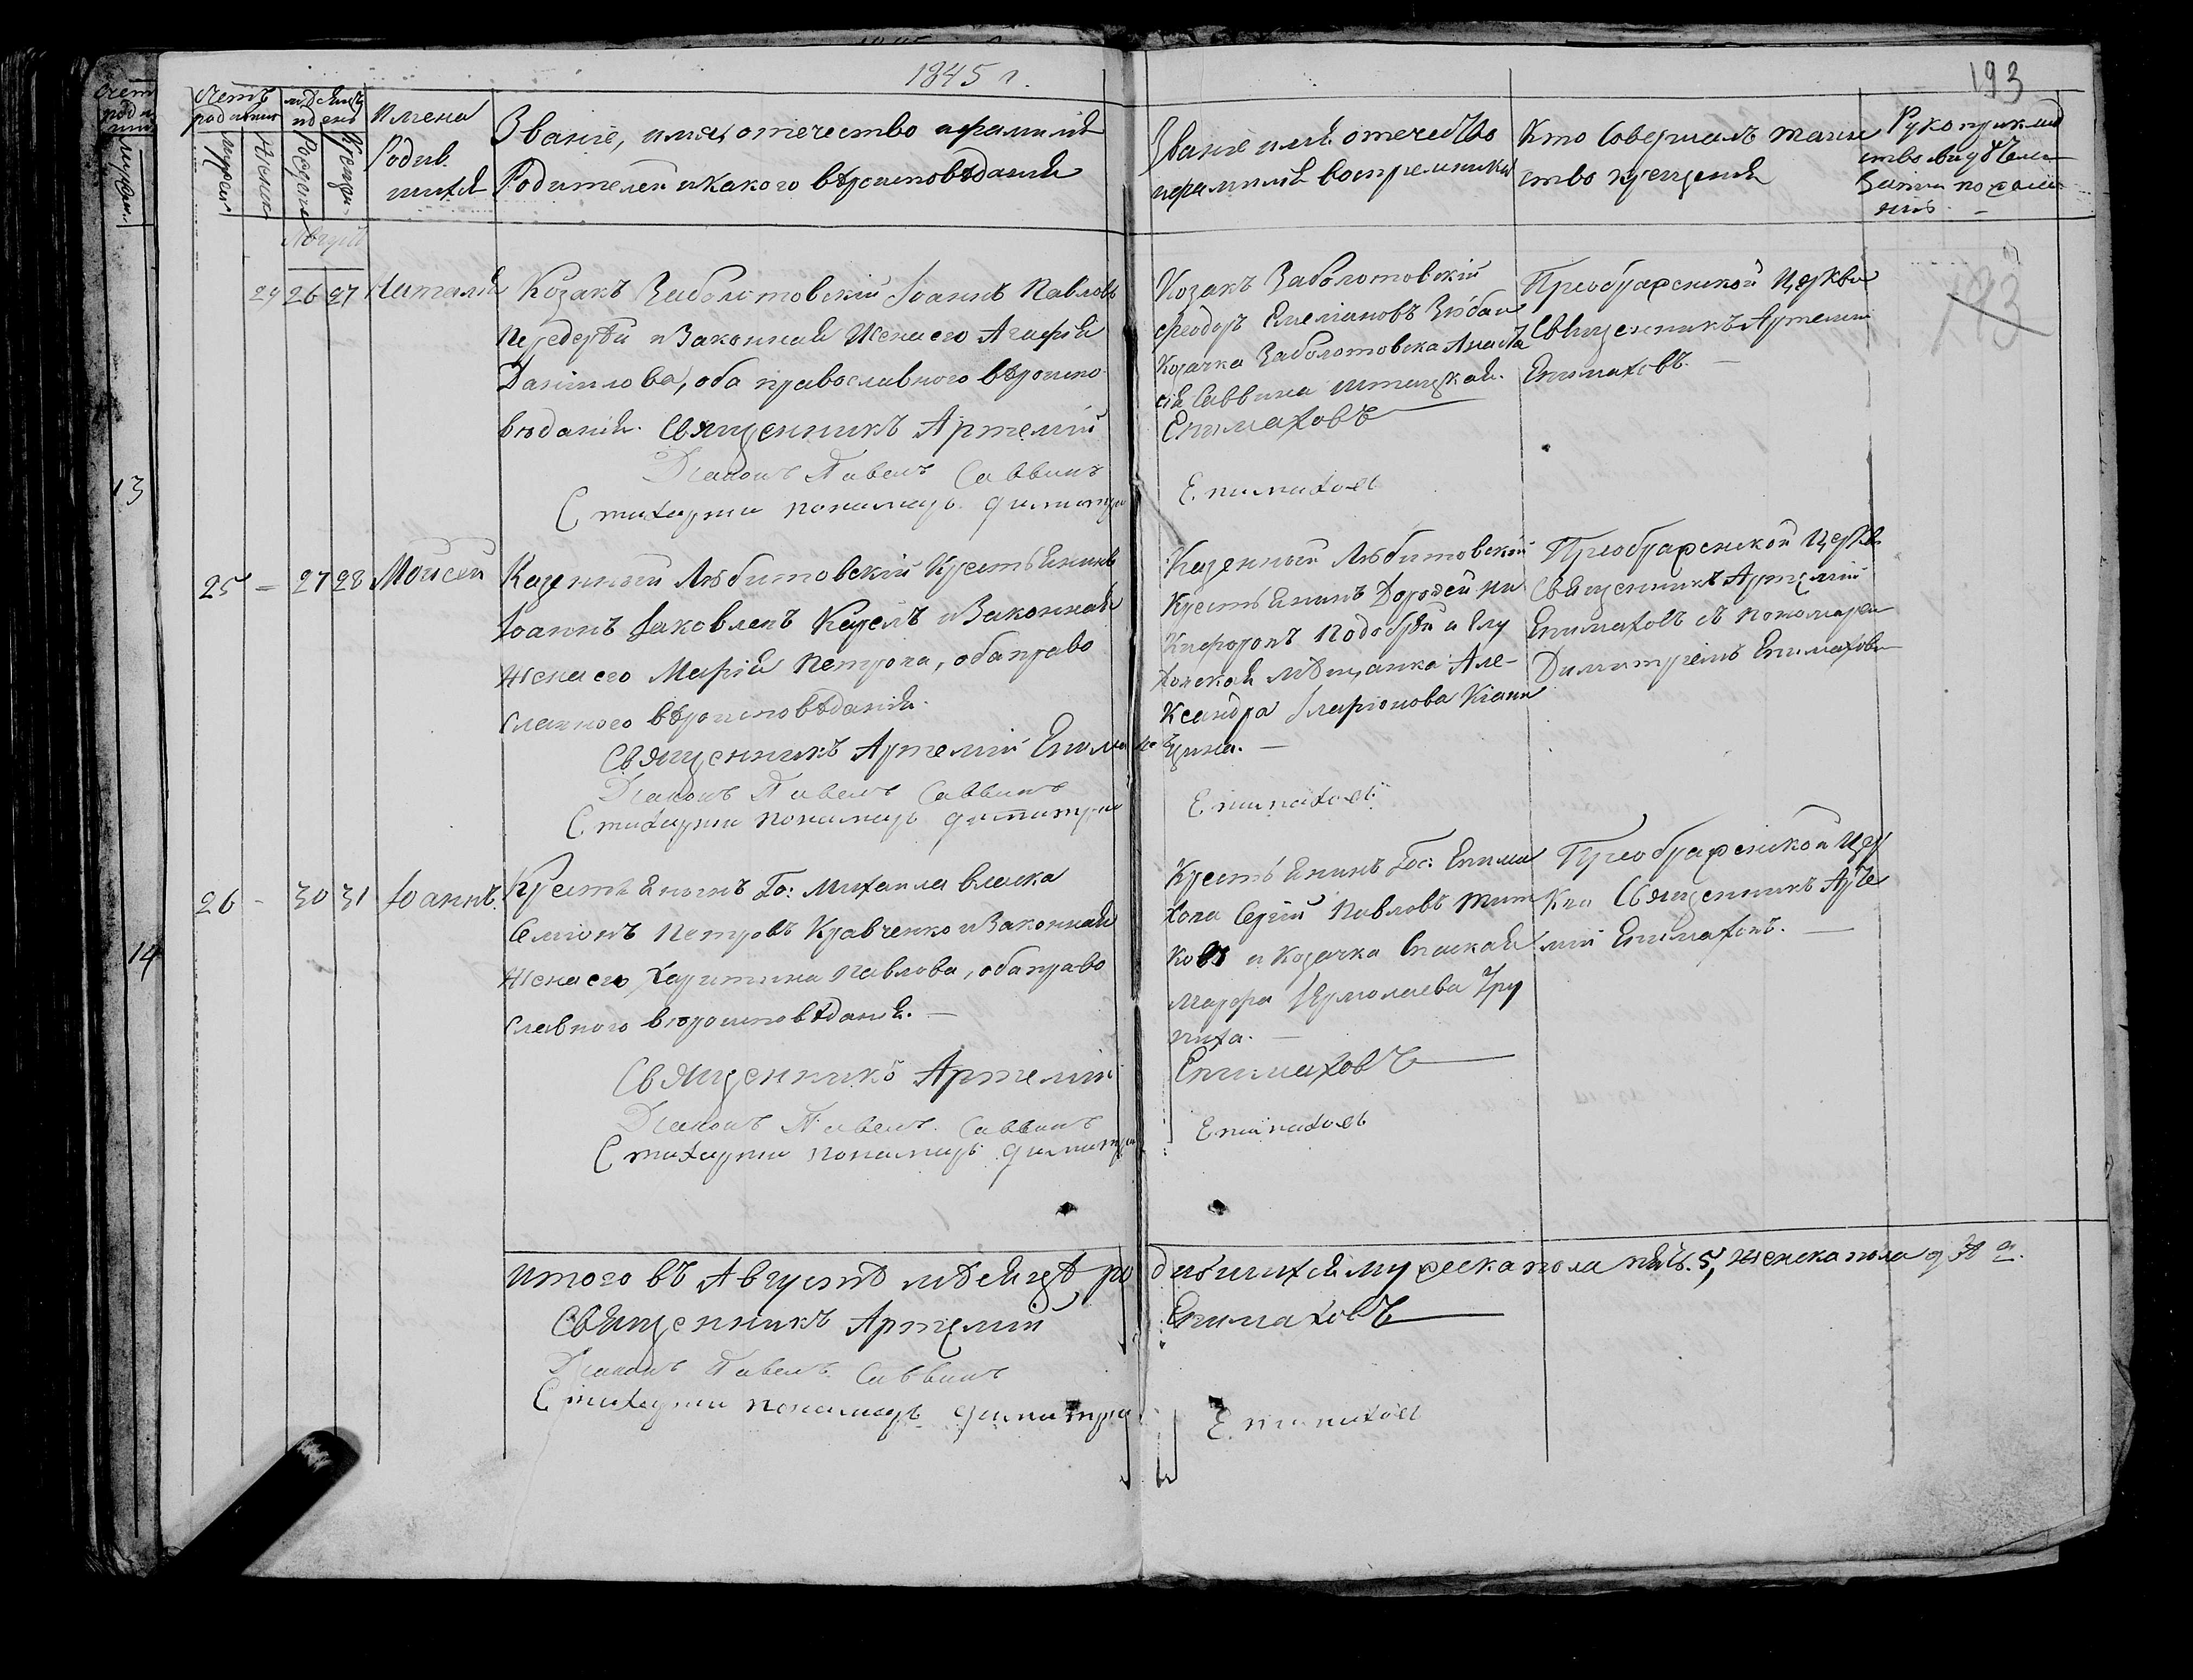 1845 г.
193
Счетъ родившихся
Мѣсяцъ и день
Имена Родившихся
Званіе, имя, отечество и фамилія
Родителей и какого вѣроисповѣданія
Званіе имя отечество
и фамилія воспріемниковъ
Кто совершалъ таин
ство крещенія
Рукоприклад
ство свидѣтелей
записи по желанію
Мужеск
Женск
Рожденія
Крещен.
Августъ
29 26 27 Наталія
Козакъ Заболотовскій Іоаннъ Павловъ
Передерѣй и Законная Жена его Агафія
Данилова, оба православного вѣроиспо
вѣданія. Священникъ Артемій
Діаконъ Павелъ Саввинъ
Стихарный пономарь Димитрій
Козакъ Заболотовскій
Феодоръ Емеліановъ
Козачка Заболотовска Анаста
сія Саввина
Епимаховъ
Епимаховъ
Преображенской Церкви
Священникъ Артемій
Епимаховъ.
193
13
25 - 27 28 Моисей
Казенный Любитовскій Крестьянинъ
Іоаннъ Іаковлевъ Кизелъ и Законная
Жена его Марія Петрова, обаправо
славного вѣроисповѣданія.
Священникъ Артемій Епимаховъ
Діаконъ Павелъ Саввинъ
Стихарный пономарь Димитрій
Казенный Любитовской
Крестьянинъ Дорофей Ни
кифоровъ Подобрѣй и Глу
ховская мѣщанка Але-
ксандра Иларіонова Кіани
цина.
Епимаховъ
Преображенской Церкви
Священникъ Артемій
Епимаховъ съ пономаремъ
Димитріемъ Епимаховымъ
26 - 30 31 Іоаннъ.
Крестьянинъ Гос: Михаила
Семіонъ Петровъ Кравченко и Законная
Жена его Харитина Павлова, обаправо
славного вѣроисповѣданія.
Священникъ Артемій
Діаконъ Павелъ Саввинъ
Стихарный пономарь Димитрій
Крестьянинъ Гос: Епима
хова Сергій Павловъ Тит
ковъ и Козачка Спаская
Марфа Ермолаева Тру
пиха.
Епимаховъ
Епимаховъ
Преображенской Цер
кви Священникъ Арте
мій Епимаховъ.
14
итого въ Августѣ мѣсяцѣ ро дившихся мужеска пола пять. 5, женска пола
Священникъ Артемій Епимаховъ
Діаконъ Павелъ Саввинъ
Стихарный пономарь Димитрій Епимаховъ